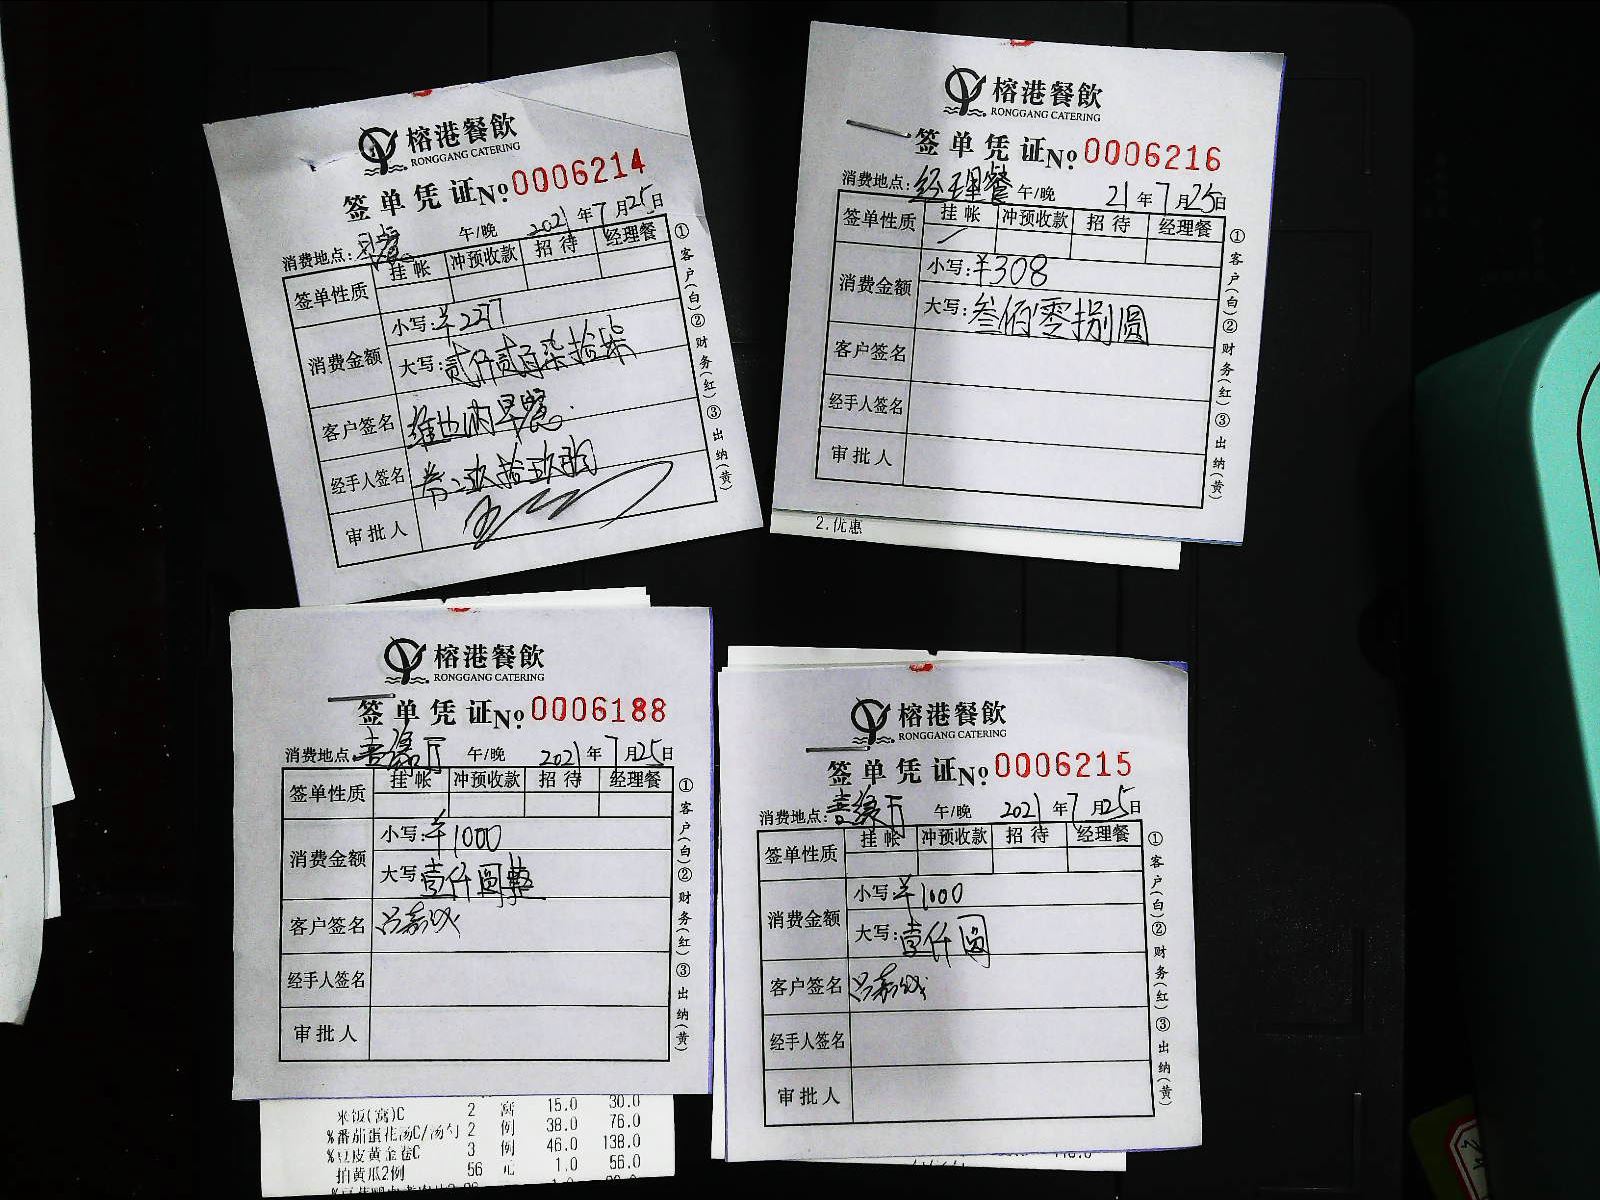 榕港餐飲
RONGGANG CATERING
签单凭证№0006214
消费地点: 早餐 午/晚 2021年7月25日
签单性质 挂帐 冲预收款 招待 经理餐
消费金额 小写:¥2277
大写:贰仟贰百柒拾柒
客户签名 维也纳早餐
经手人签名
审批人
①客户(白)②财务(红)③出纳(黄)
榕港餐飲
RONGGANG CATERING
签单凭证№0006216
消费地点:经理餐 午/晚 21年7月25日
签单性质 挂帐 冲预收款 招待 经理餐
消费金额 小写:¥308
大写:叁佰零捌圆
客户签名
经手人签名
审批人
①客户(白)②财务(红)③出纳(黄)
2.优惠
榕港餐飲
RONGGANG CATERING
签单凭证№0006188
消费地点:喜缘厅 午/晚 2021年7月25日
签单性质 挂帐 冲预收款 招待 经理餐
消费金额 小写:¥1000
大写:壹仟圆整
客户签名
经手人签名
审批人
①客户(白)②财务(红)③出纳(黄)
米饭(窝)C 2 窝 15.0 30.0
%番茄蛋花汤C/汤勺 2 例 38.0 76.0
%豆皮黄金卷C 3 例 46.0 138.0
拍黄瓜2例 56 元 1.0 56.0
榕港餐飲
RONGGANG CATERING
签单凭证№0006215
消费地点:喜缘厅 午/晚 2021年7月25日
签单性质 挂帐 冲预收款 招待 经理餐
消费金额 小写:¥1000
大写:壹仟圆
客户签名
经手人签名
审批人
①客户(白)②财务(红)③出纳(黄)